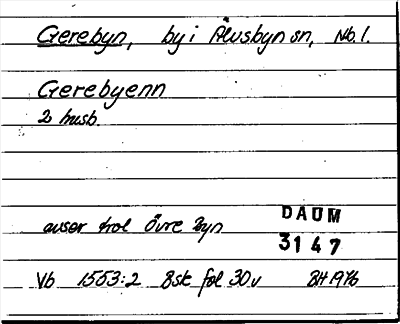 Gerebyn, by i Älvsbyn sn, Nb. l.
Gerebyenn
2 husb.
avser trol Övre Byn
DAUM
3147
Vb 1553:2 Bsk fol 30v BH 1976